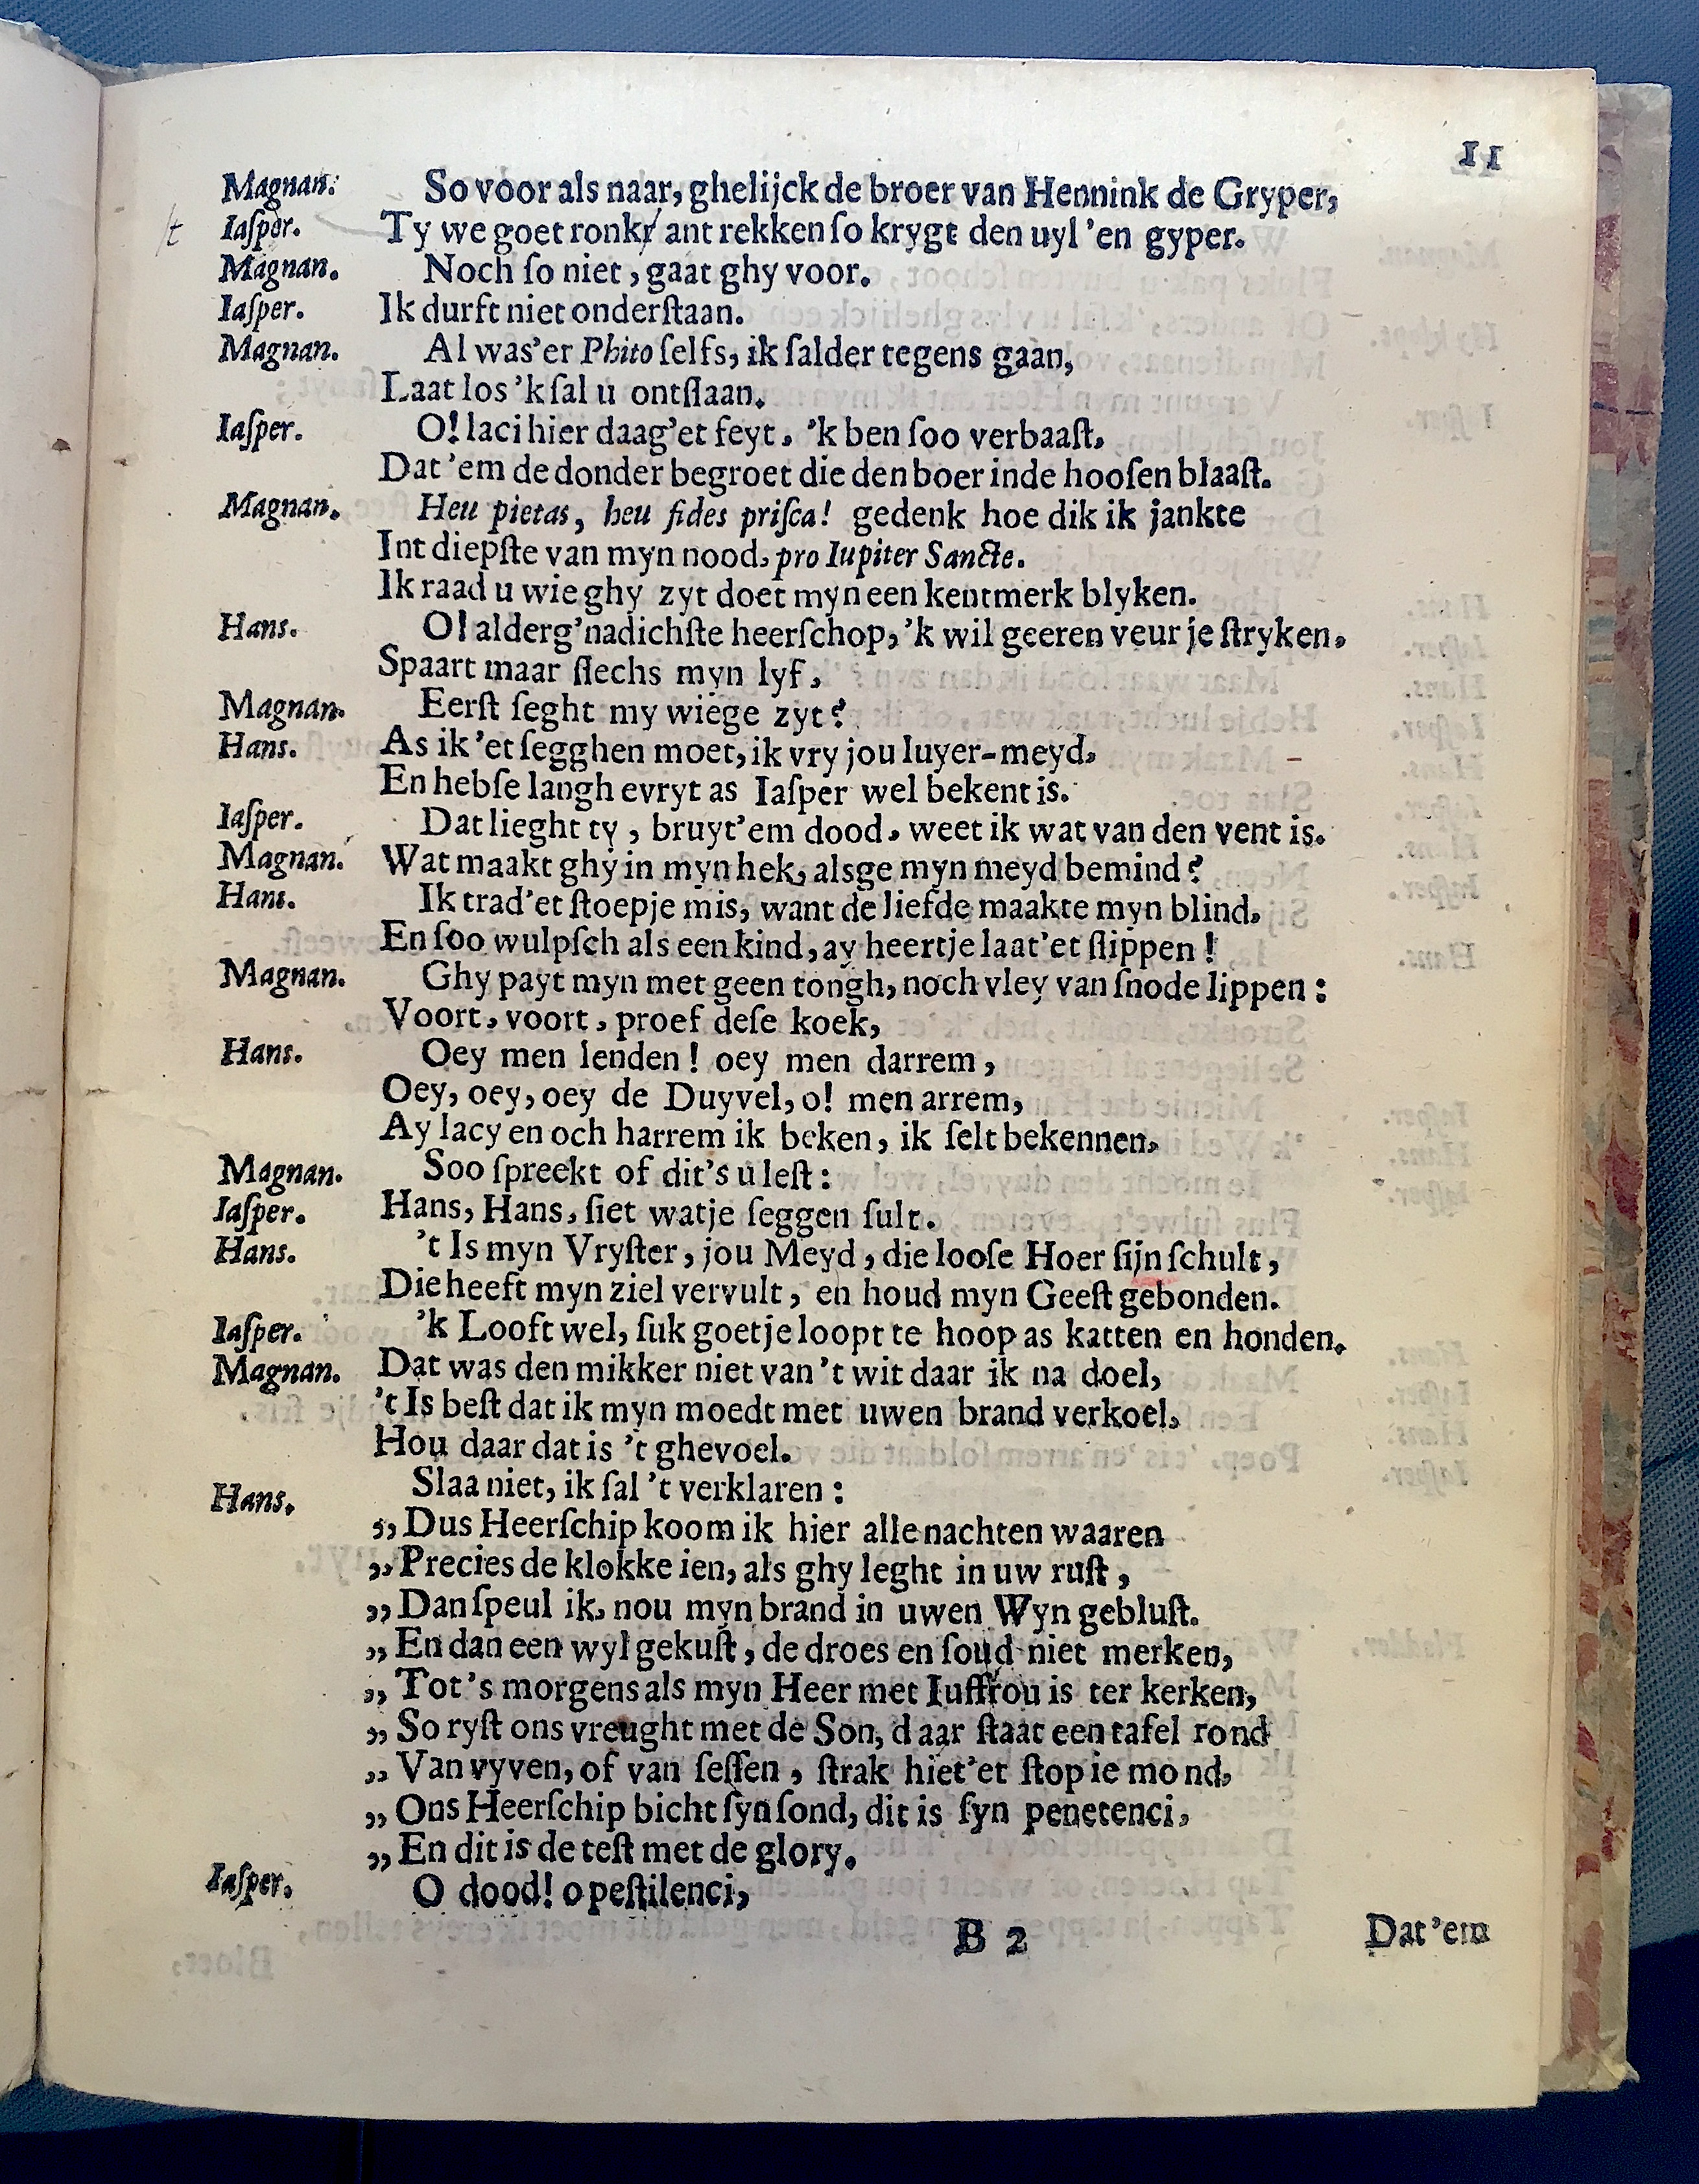 11
Magnan. So voor als naar, ghelijck de broer van Hennink de Gryper,
Iaſper. Ty we goet ronkr ant rekken ſo krygt den uyl 'en gyper.
Magnan. Noch ſo niet, gaat ghy voor.
Iaſper. Ik durft niet onderſtaan.
Magnan. Al was'er Phito ſelfs, ik ſalder tegens gaan,
Laat los 'k ſal u ontſlaan.
Iaſper. O! laci hier daag'et feyt, 'k ben ſoo verbaaſt,
Dat 'em de donder begroet die den boer inde hooſen blaaſt.
Magnan. Heu pietas, heu fides priſca! gedenk hoe dik ik jankte
Int diepſte van myn nood, pro Iupiter Sancte.
Ik raad u wie ghy zyt doet myn een kentmerk blyken.
Hans. O! alderg'nadichſte heerſchop, 'k wil geeren veur je ſtryken,
Spaart maar ſlechs myn lyf,
Magnan. Eerſt ſeght my wie ge zyt?
Hans. As ik 'et ſegghen moet, ik vry jou luyer-meyd,
En hebſe langh evryt as Iaſper wel bekent is.
Iaſper. Dat lieght ty, bruyt'em dood, weet ik wat van den vent is.
Magnan. Wat maakt ghy in myn hek, alsge myn meyd bemind?
Hans. Ik trad'et ſtoepje mis, want de liefde maakte myn blind,
En ſoo wulpſch als een kind, ay heertje laat'et ſlippen!
Magnan. Ghy payt myn met geen tongh, noch vley van ſnode lippen:
Voort, voort, proef deſe koek,
Hans. Oey men lenden! oey men darrem,
Oey, oey, oey de Duyvel, o! men arrem,
Ay lacy en och harrem ik beken, ik ſelt bekennen,
Magnan. Soo ſpreekt of dit's u leſt:
Iaſper. Hans, Hans, ſiet watje ſeggen ſult.
Hans. 't Is myn Vryſter, jou Meyd, die looſe Hoer ſijn ſchult,
Die heeft myn ziel vervult, en houd myn Geeſt gebonden.
Iaſper. 'k Looft wel, ſuk goetje loopt te hoop as katten en honden.
Magnan. Dat was den mikker niet van 't wit daar ik na doel,
't Is beſt dat ik myn moedt met uwen brand verkoel,
Hou daar dat is 't ghevoel.
Hans. Slaa niet, ik ſal 't verklaren:
„ Dus Heerſchip koom ik hier alle nachten waaren
„ Precies de klokke ien, als ghy leght in uw ruſt,
„ Dan ſpeul ik, nou myn brand in uwen Wyn gebluſt.
„ En dan een wyl gekuſt, de droes en ſoud niet merken,
„ Tot 's morgens als myn Heer met Iuffrou is ter kerken,
„ So ryſt ons vreught met de Son, daar ſtaat een tafel rond
„ Van vyven, of van ſeſſen, ſtrak hiet'et ſtop ie mond,
„ Ons Heerſchip bicht ſyn ſond, dit is ſyn penetenci,
„ En dit is de teſt met de glory.
Iaſper. O dood! o peſtilenci,
B 2 Dat 'em